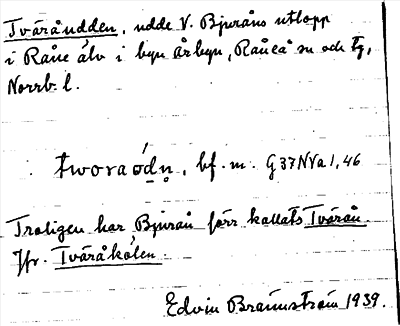 Tväråudden, udde V. Bjuråns utlopp
i Råne älv i byn Årbyn, Råneå sn och tg,
Norrb. l.
tworaódṇ, bf. m. G37NVa1,46
Troligen har Bjurån förr kallats Tvärån.
Jfr. Tväråkölen.
Edvin Brännström 1939.